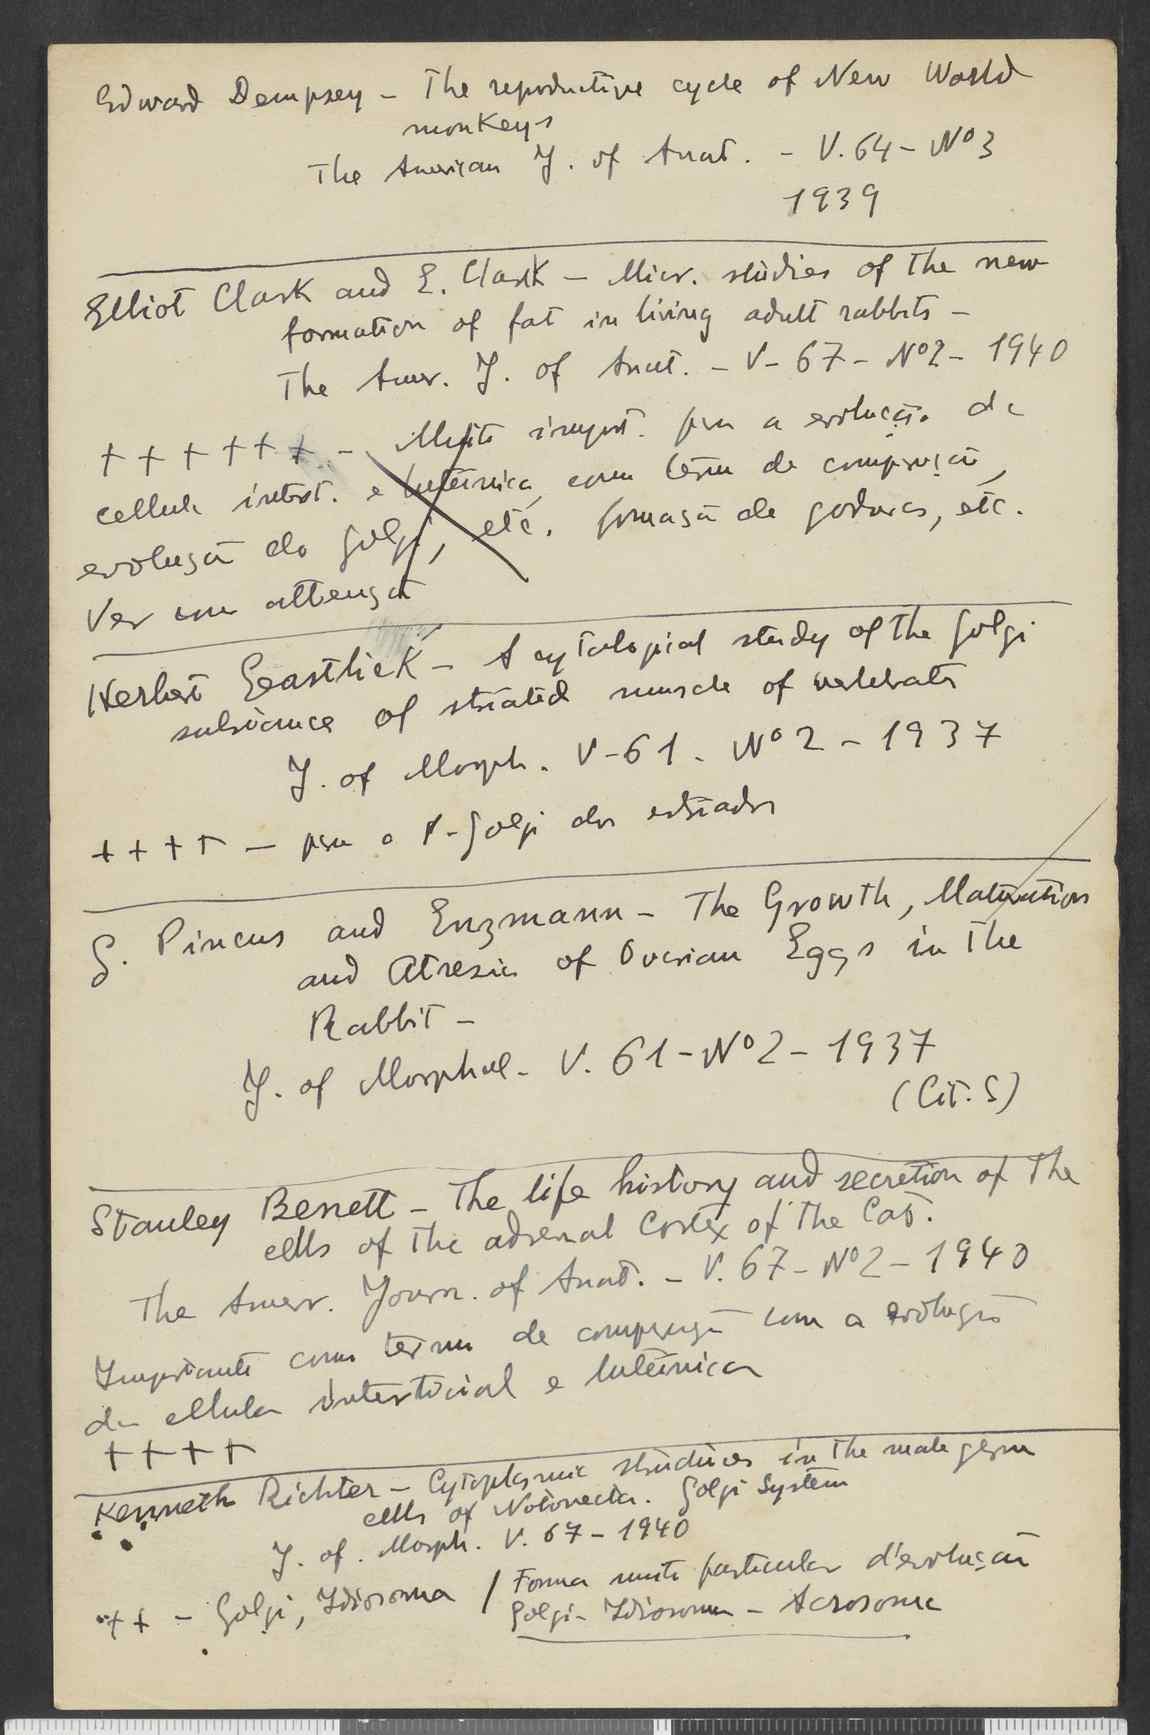 Edward Dempsey - The reproductive cycle of New World
monkeys
The American J. of Anat. - V. 64 - Nº 3
1939
Elliot Clark and E. Clark - Micr. studies of the new
formation of fat in living adult rabbits -
The Amer. J. of Anat. - V - 67 - Nº 2 - 1940
+ + + + + + - Muito import. para a evolução da
cellula interst. e luteinica, como termo de comparação,
evolução do Golgi, etc. formação de goduras, etc.
Ver com attenção
Herbert Eastlick - A cytological study of the Golgi
substance of striated muscle of vertebrates
J. of Morph. V - 61 - Nº 2 - 1937
+ + + + - para o A-Golgi dos estriados
G. Pincus and Enzmann - The Growth, Maturation
and Atresia of Ovarian Eggs in the
Rabbit -
J. of Morphol - V. 61 - Nº 2 - 1937
(Cit. S)
Stanley Benett - The life history and secretion of the
cells of the adrenal Cortex of the Cat.
The Amer. Journ. of Anat. - V. 67 - Nº 2 - 1940
Importante como termo de comparação com a evolução
da cellula interticial e luteinica
+ + + +
Kenneth Richter - Cytoplasmic structures in the male germ
cells of Notonecta. Golgi System
J. of. Morph. V. 67 - 1940
++ - Golgi, Idiosoma / Forma muito particular d'evolução
Golgi - Idiosoma - Acrosome